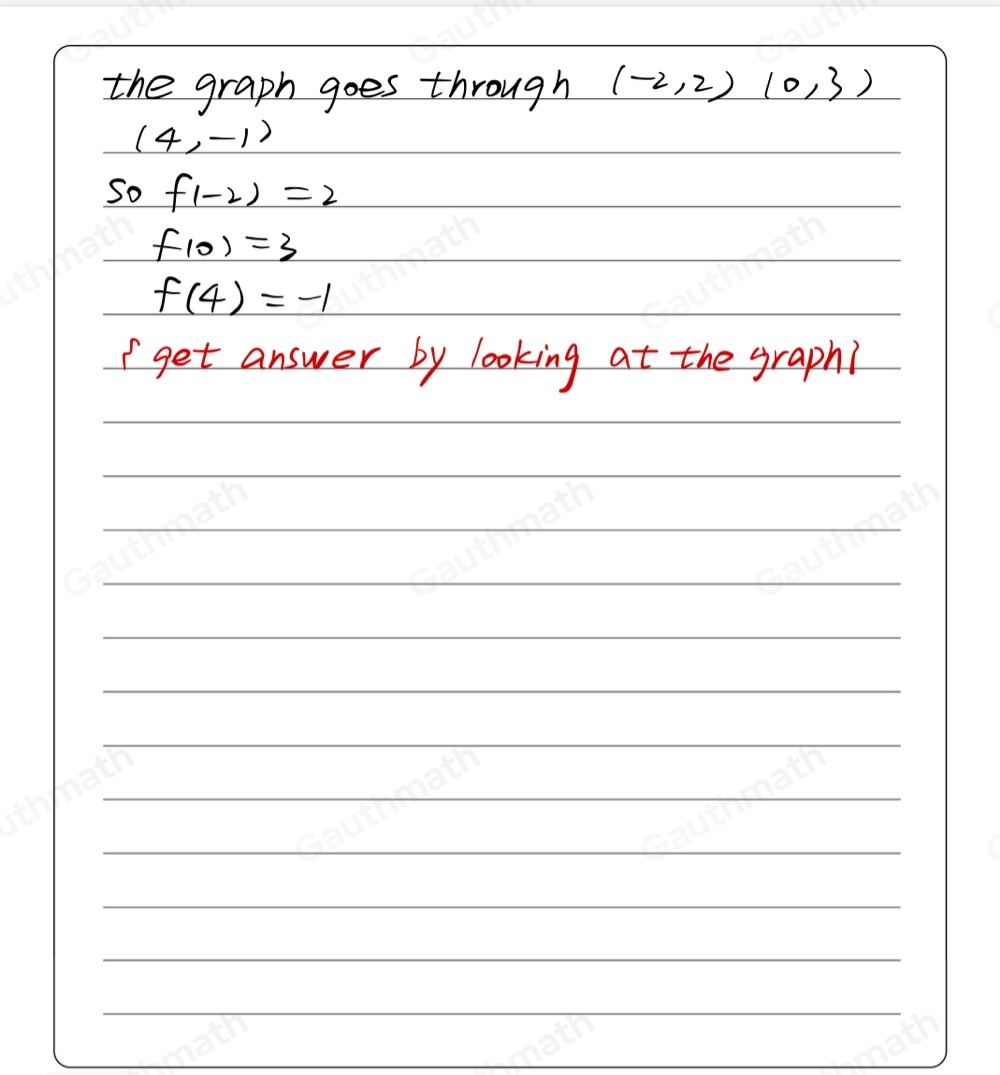 the graph goes through (-2,2) (0,3)
(4,-1)
so f(-2) = 2
f(0) = 3
f(4) = -1
{ get answer by looking at the graph}